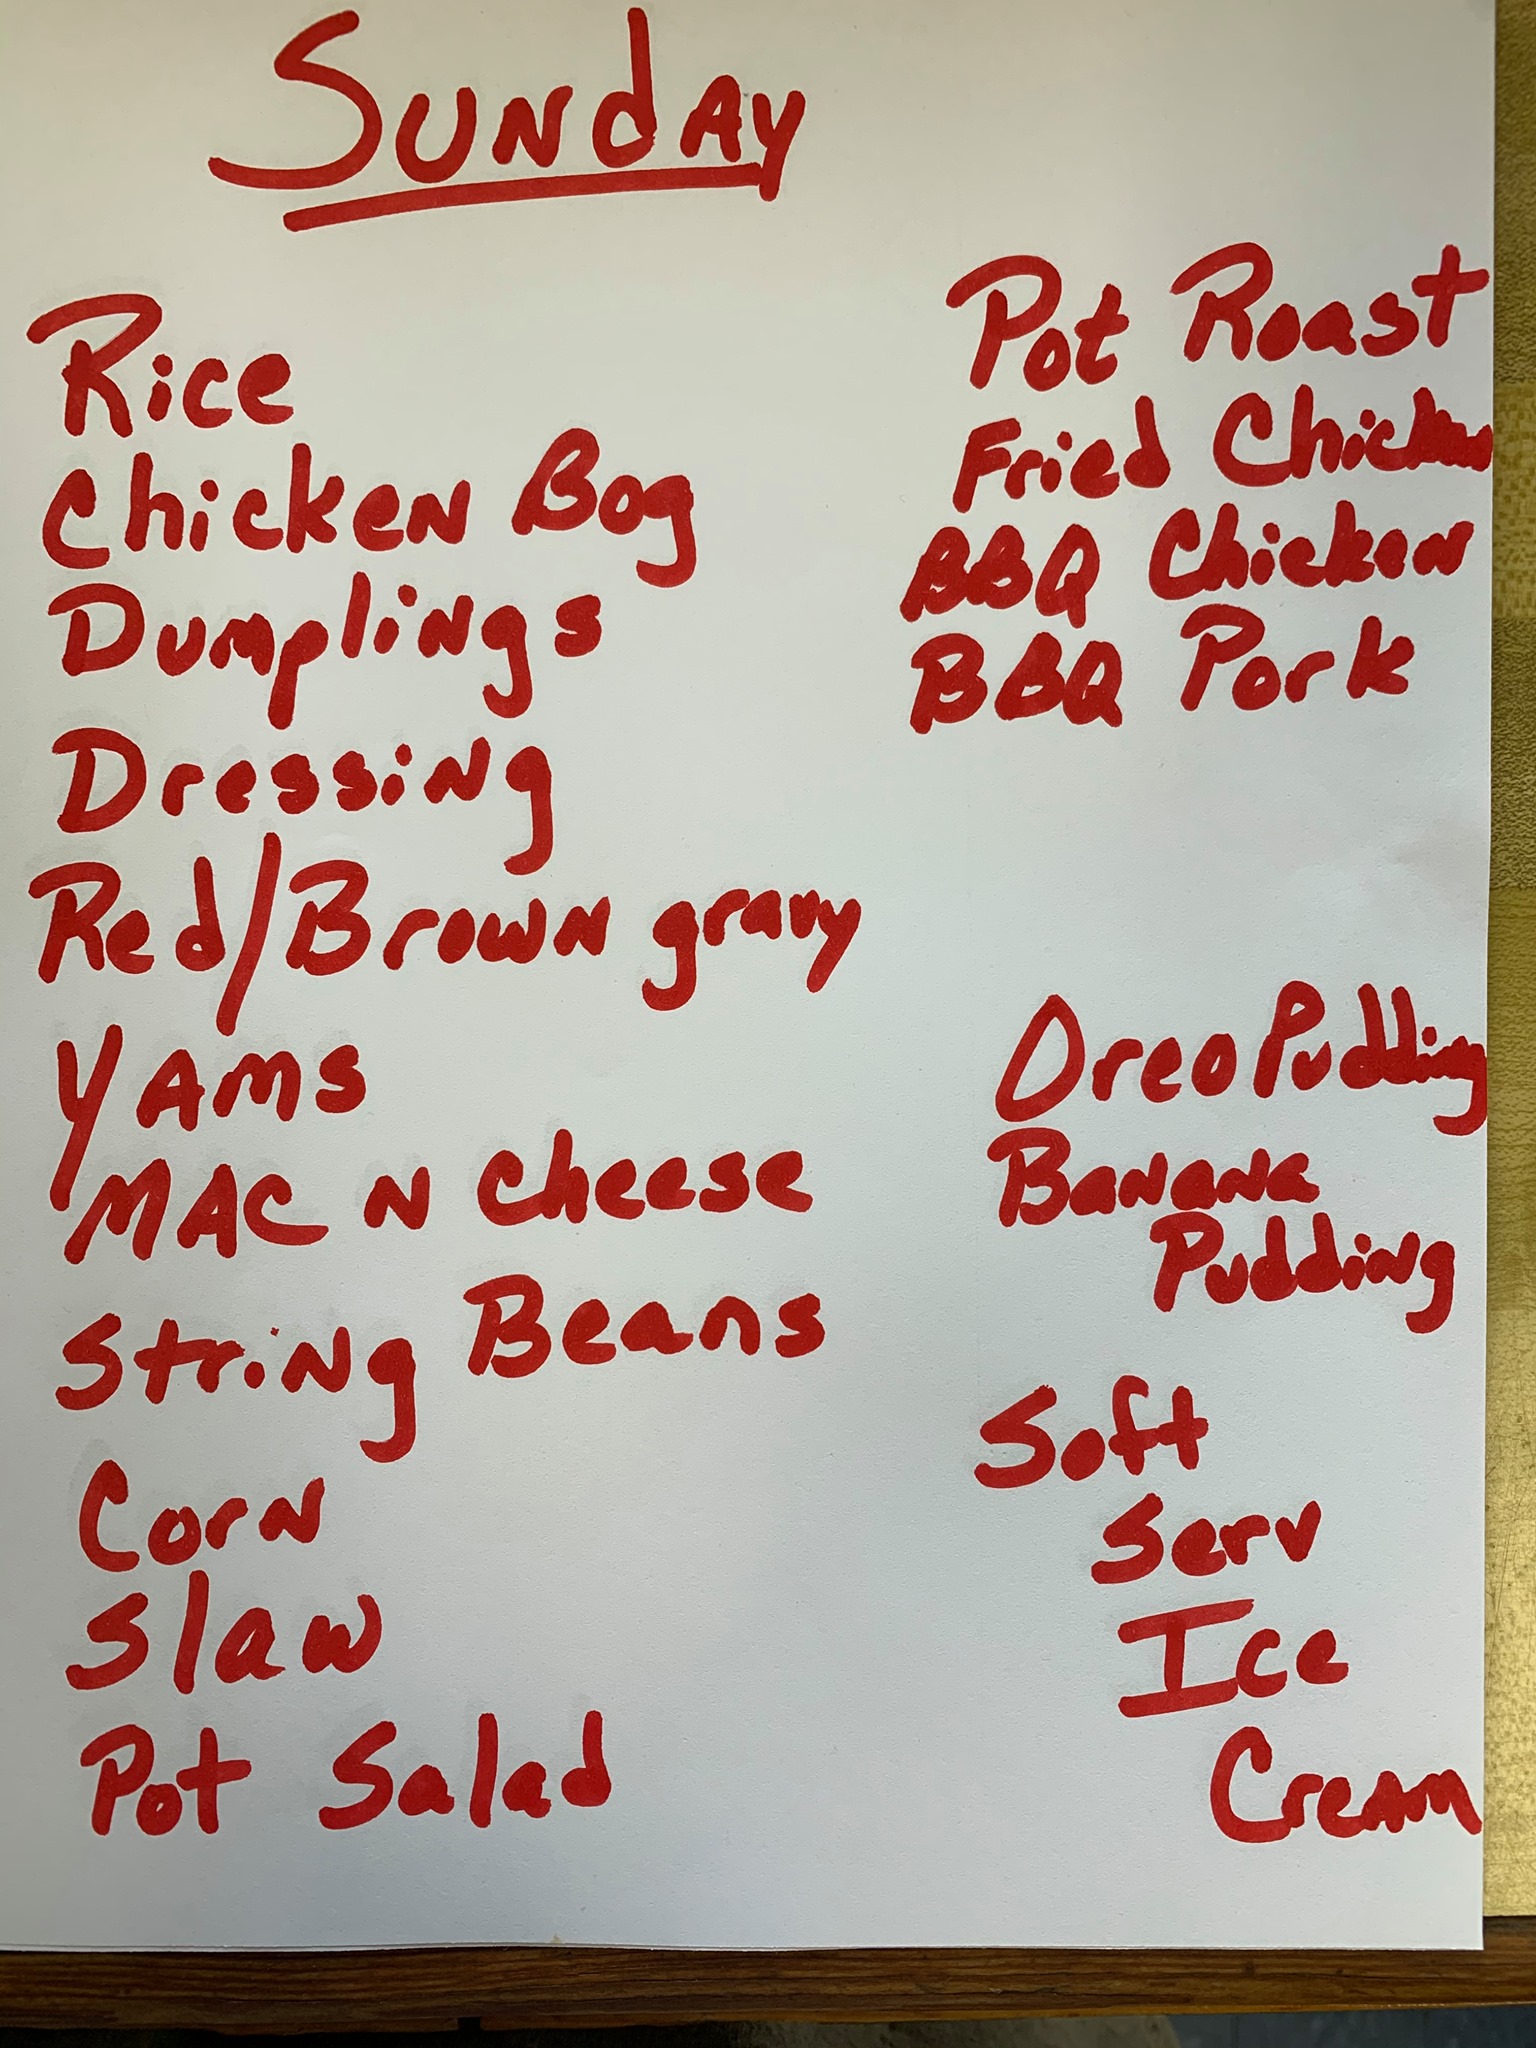 Sunday
Rice
Chicken Bog
Dumplings
Dressing
Red/Brown gravy
Yams
Mac n cheese
String Beans
Corn
Slaw
Pot Salad
Pot Roast
Fried Chicken
BBQ Chicken
BBQ Pork
Oreo Pudding
Banana
Pudding
Soft
Serv
Ice
Cream